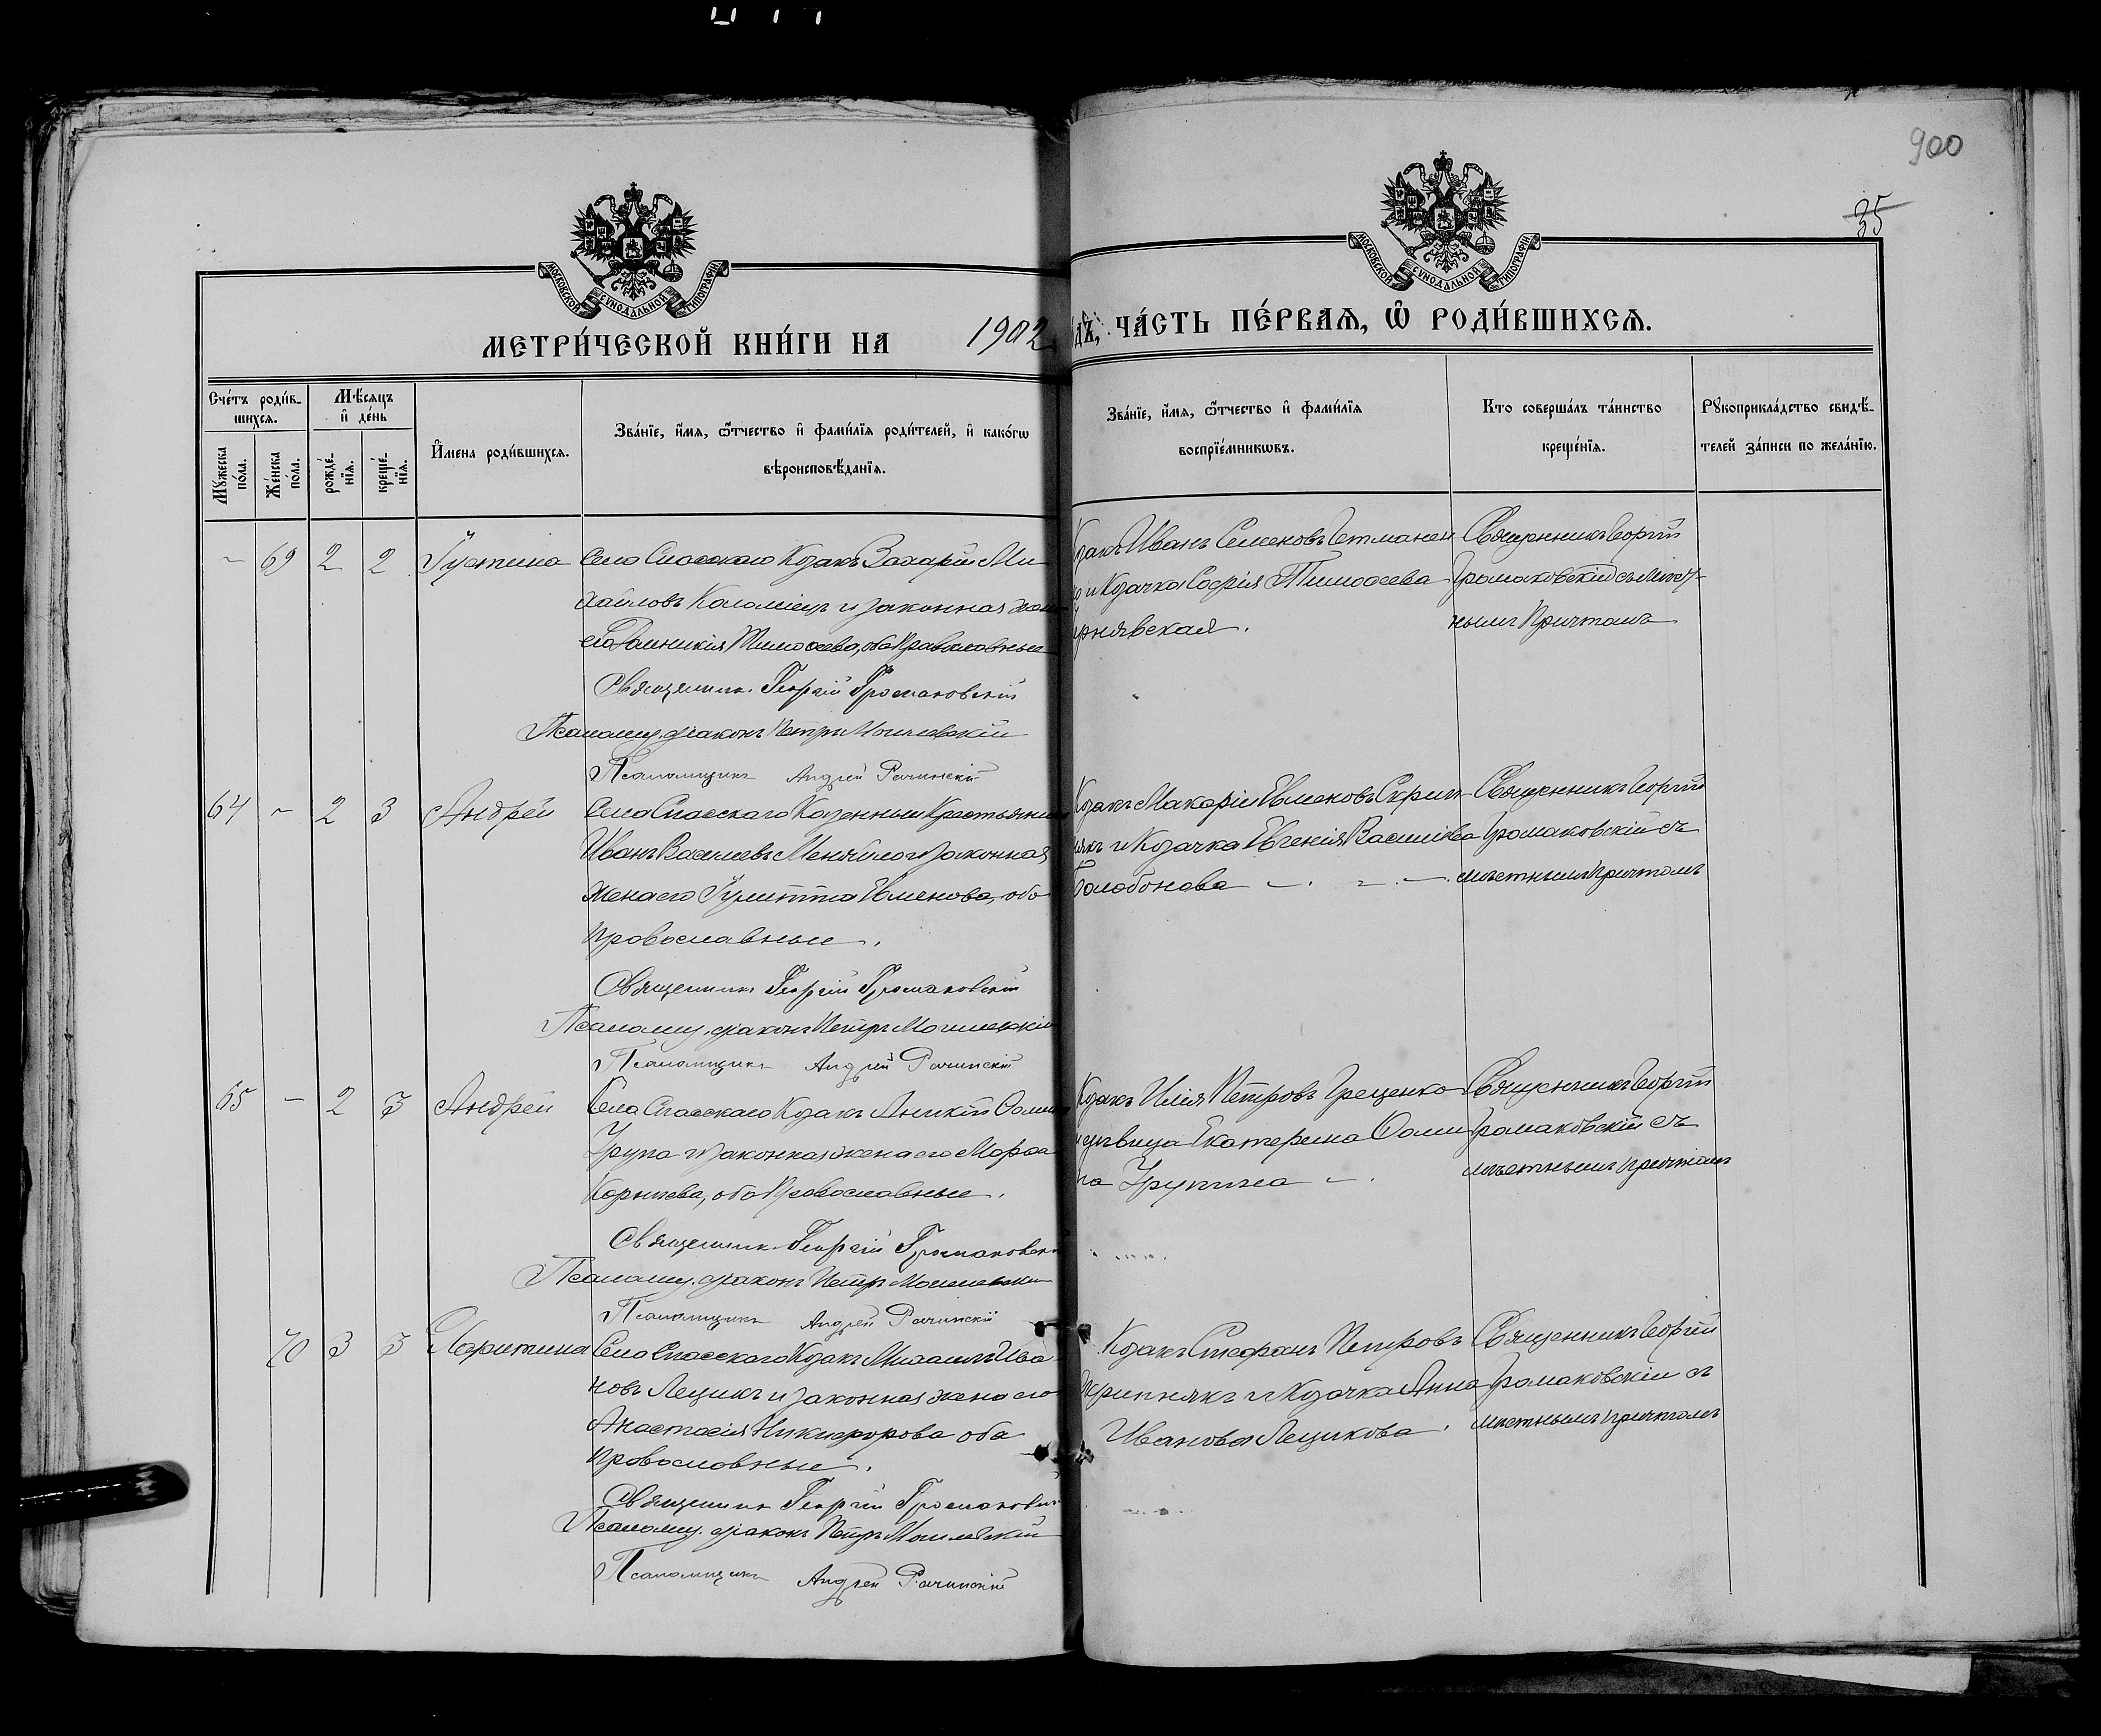 900
35
МОСКОВСКОЙ СѴНОДАЛЬНОЙ ТИПОГРАФІИ
МОСКОВСКОЙ СѴНОДАЛЬНОЙ ТИПОГРАФІИ
МЕТРИ́ЧЕСКОЙ КНИ́ГИ НА 1902
ЧА́СТЬ ПЕ́РВАѦ, Ѡ҆ РОДИ́ВШИХСѦ.
Сче́тъ роди́в-
шихсѧ.
Мꙋ́жеска по́ла.
Же́нска по́ла.
Мѣ́сѧцъ
и҆ де́нь
рожде́-
нїѧ.
креще́-
нїѧ.
И҆мена роди́вшихсѧ.
Зва́нїе, и҆́мѧ, ѻ҆́тчество и҆ фами́лїѧ роди́телей, и҆ како́гѡ
вѣроисповѣ́данїѧ.
Зва́нїе, и҆́мѧ, ѻ҆́тчество и҆ фами́лїѧ
воспрїе́мникѡвъ.
Кто соверша́лъ та́инство
креще́нїѧ.
Рꙋкоприкла́дство свидѣ́-
телей за́писи по жела́нїю.
- 69 2 2 Іустина Села Спасскаго Козакъ Захарій Ми-
хайловъ Коломіецъ и законная жена
его Тимоѳеева, оба Православные
Священникъ Георгій Громаковскій
Псаломщ. діаконъ Петръ Могилевскій
Псаломщикъ Андрей Рачинскій
Козакъ Иванъ Семеновъ Гетманен
ко и Козачка Софія Тимоѳеева
Священникъ Георгій
Громаковскій съ мѣст-
нымъ Причтомъ
64 - 2 3 Андрей Села Спасскаго Казенный Крестьянинъ
Иванъ Васильевъ Меняйло и законная
жена его Іулитта Евменова, оба
Православные.
Священникъ Георгій Громаковскій
Псаломщ. діаконъ Петръ Могилевскій
Псаломщикъ Андрей Рачинскій
Козакъ Макарій Евменовъ Скрип-
някъ и Козачка Евгенія Васильева
Священникъ Георгій
Громаковскій съ
мѣстнымъ Причтомъ
65 - 2 3 Андрей Села Спасскаго Козакъ
и законная жена его Марѳа
оба Православные.
Священникъ Георгій Громаковскій
Псаломщ. діаконъ Петръ Могилевскій
Псаломщикъ Андрей Рачинскій
Козакъ Илія Петровъ Грещенко
и дѣвица Екатерина Ѳоми
на
Священникъ Георгій
Громаковскій съ
мѣстнымъ причтомъ
70 3 3 Харитина Села Спасскаго Козакъ Михаилъ Ива
новъ Лещикъ и законная жена его
Анастасія Никифорова оба
Православные.
Священникъ Георгій Громаковскій
Псаломщ. діаконъ Петръ Могилевскій
Псаломщикъ Андрей Рачинскій
Козакъ Стефанъ Петровъ
Скрипнякъ и Козачка Анна
Иванова Лещикова.
Священникъ Георгій
Громаковскій съ
мѣстнымъ причтомъ